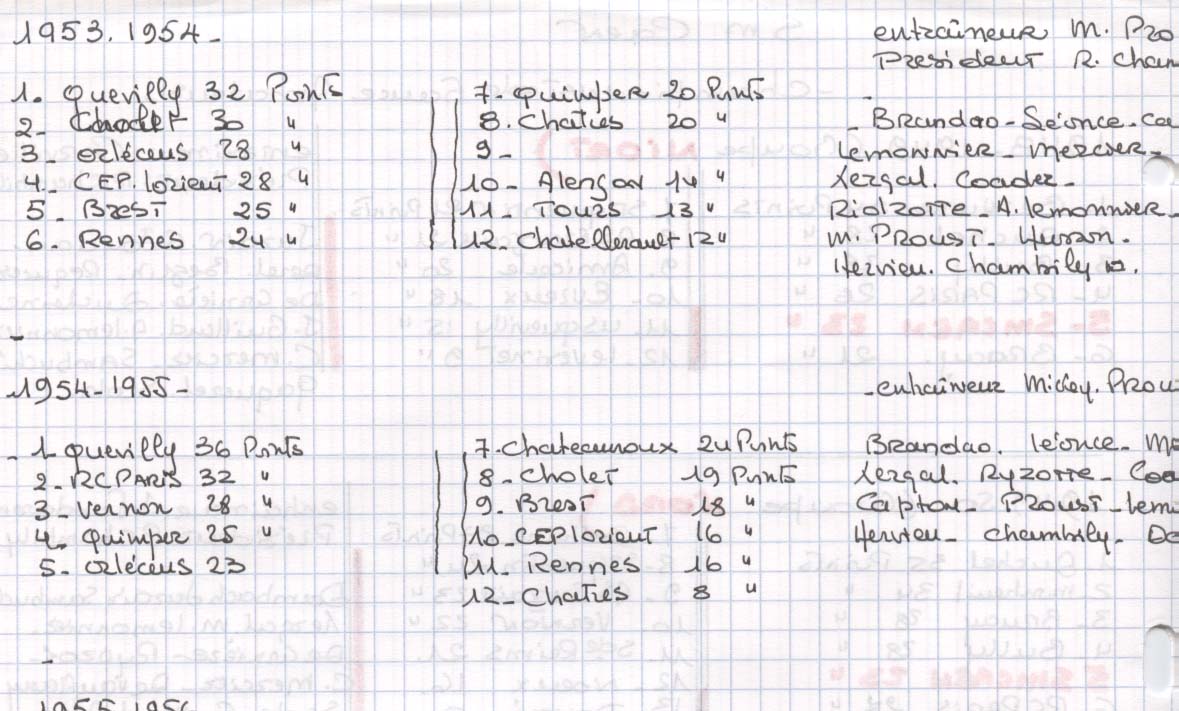 1953. 1954-
entraîneur M. Pro
President R. Cham
1. Quevilly 32 Points
2- Cholet 30 "
3- Orléans 28 "
4- CEP. lorient 28 "
5- Brest 25 "
6. Rennes 24 "
7- Quimper 20 Points
8. Chatres 20 "
9-
10- Alençon 14 "
11- Tours 13 "
12. Chatellerault 12 "
- Brandao - Séonce - Ca
lemonnier - mercier -
Kergal. Coader -
Riolzotte - A. lemonnier -
m. Proust - Huron.
Hervieu. Chambily
1954-1955-
- entraineur Mickey. Prou
1 quevilly 36 Points
2- RC PARIS 32 "
3- Vernon 28 "
4- Quimper 25 "
5- Orléans 23
7. Chateauroux 24 Points
8- Cholet 19 Points
9- Brest 18 "
10- CEP lorient 16 "
11- Rennes 16 "
12- Chatres 8 "
Brandao. léonce - M
Kergal. Ryzotte - Coa
Capton - Proust - lem
Hervieu - chambily - De
1955-1956